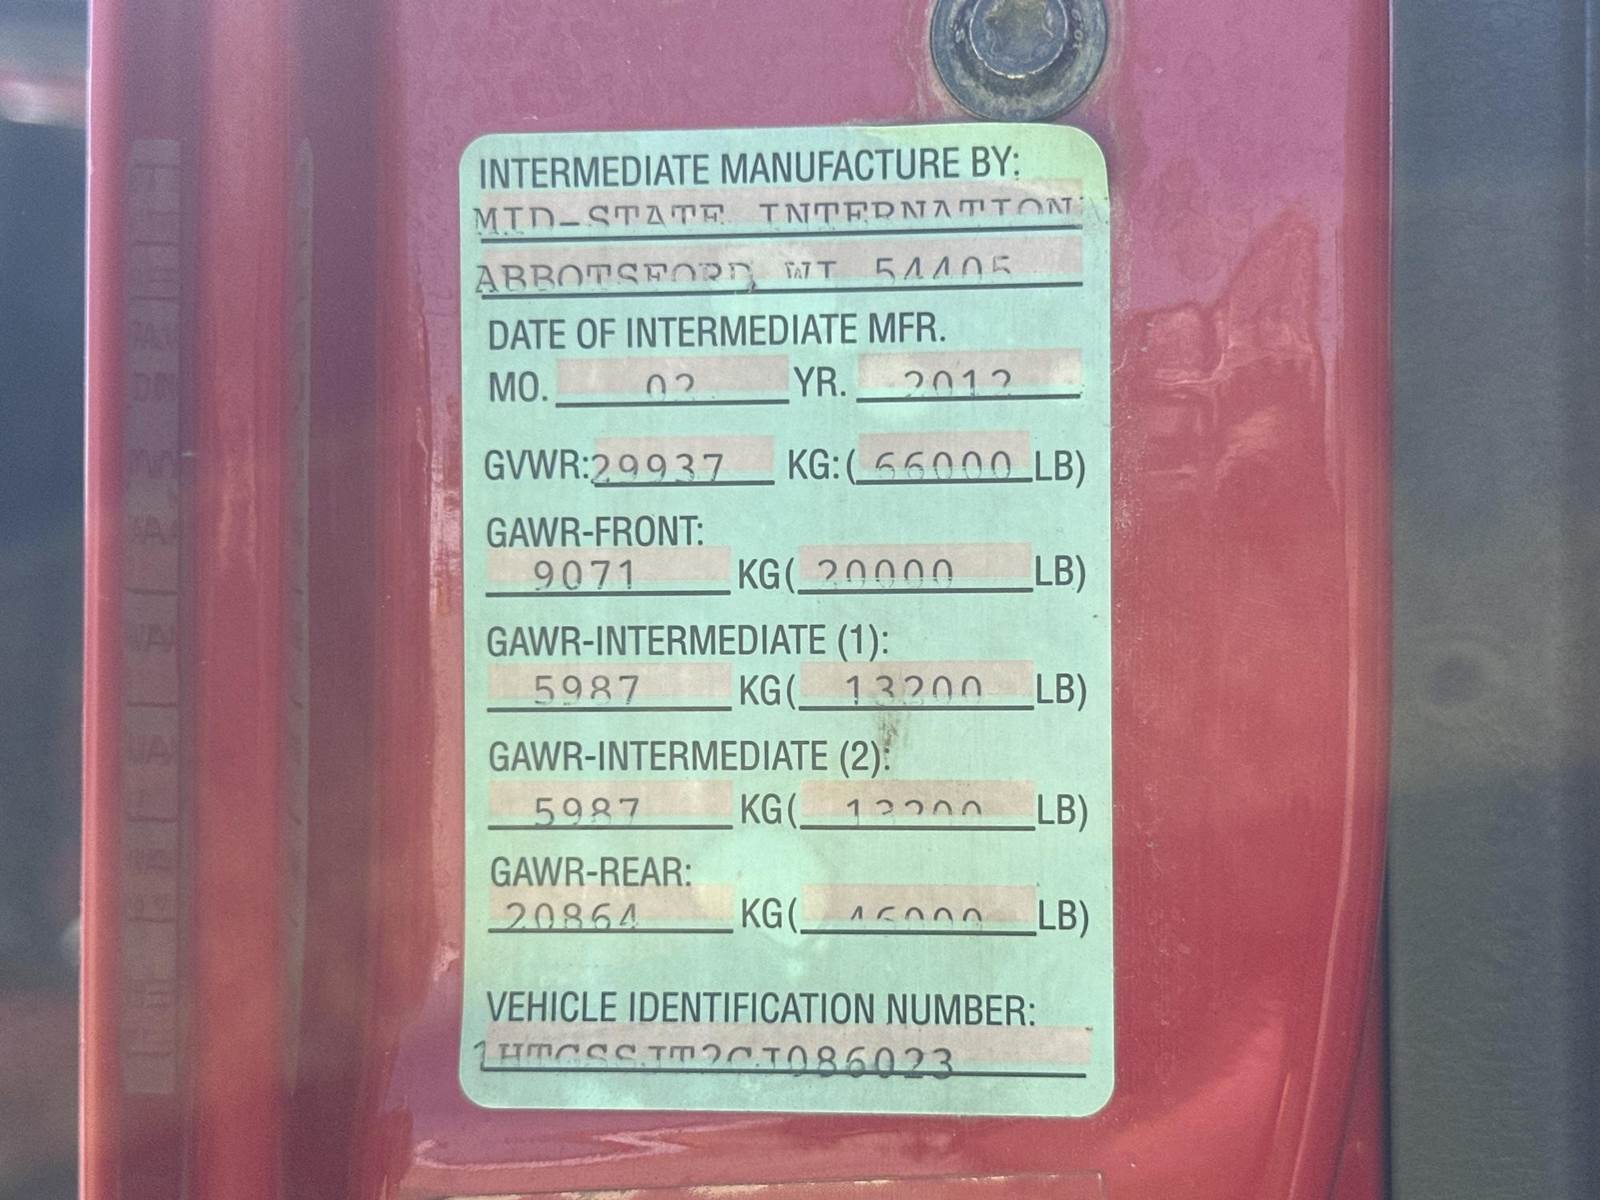 INTERMEDIATE MANUFACTURE BY:
MID-STATE INTERNATIONA
ABBOTSFORD, WI 54405
DATE OF INTERMEDIATE MFR.
MO. 02 YR. 2012
GVWR: 29937 KG: ( 66000 LB)
GAWR-FRONT:
9071 KG( 20000 LB)
GAWR-INTERMEDIATE (1):
5987 KG( 13200 LB)
GAWR-INTERMEDIATE (2):
5987 KG( 13200 LB)
GAWR-REAR:
20864 KG( 46000 LB)
VEHICLE IDENTIFICATION NUMBER:
1HTGSSJT2CJ086023